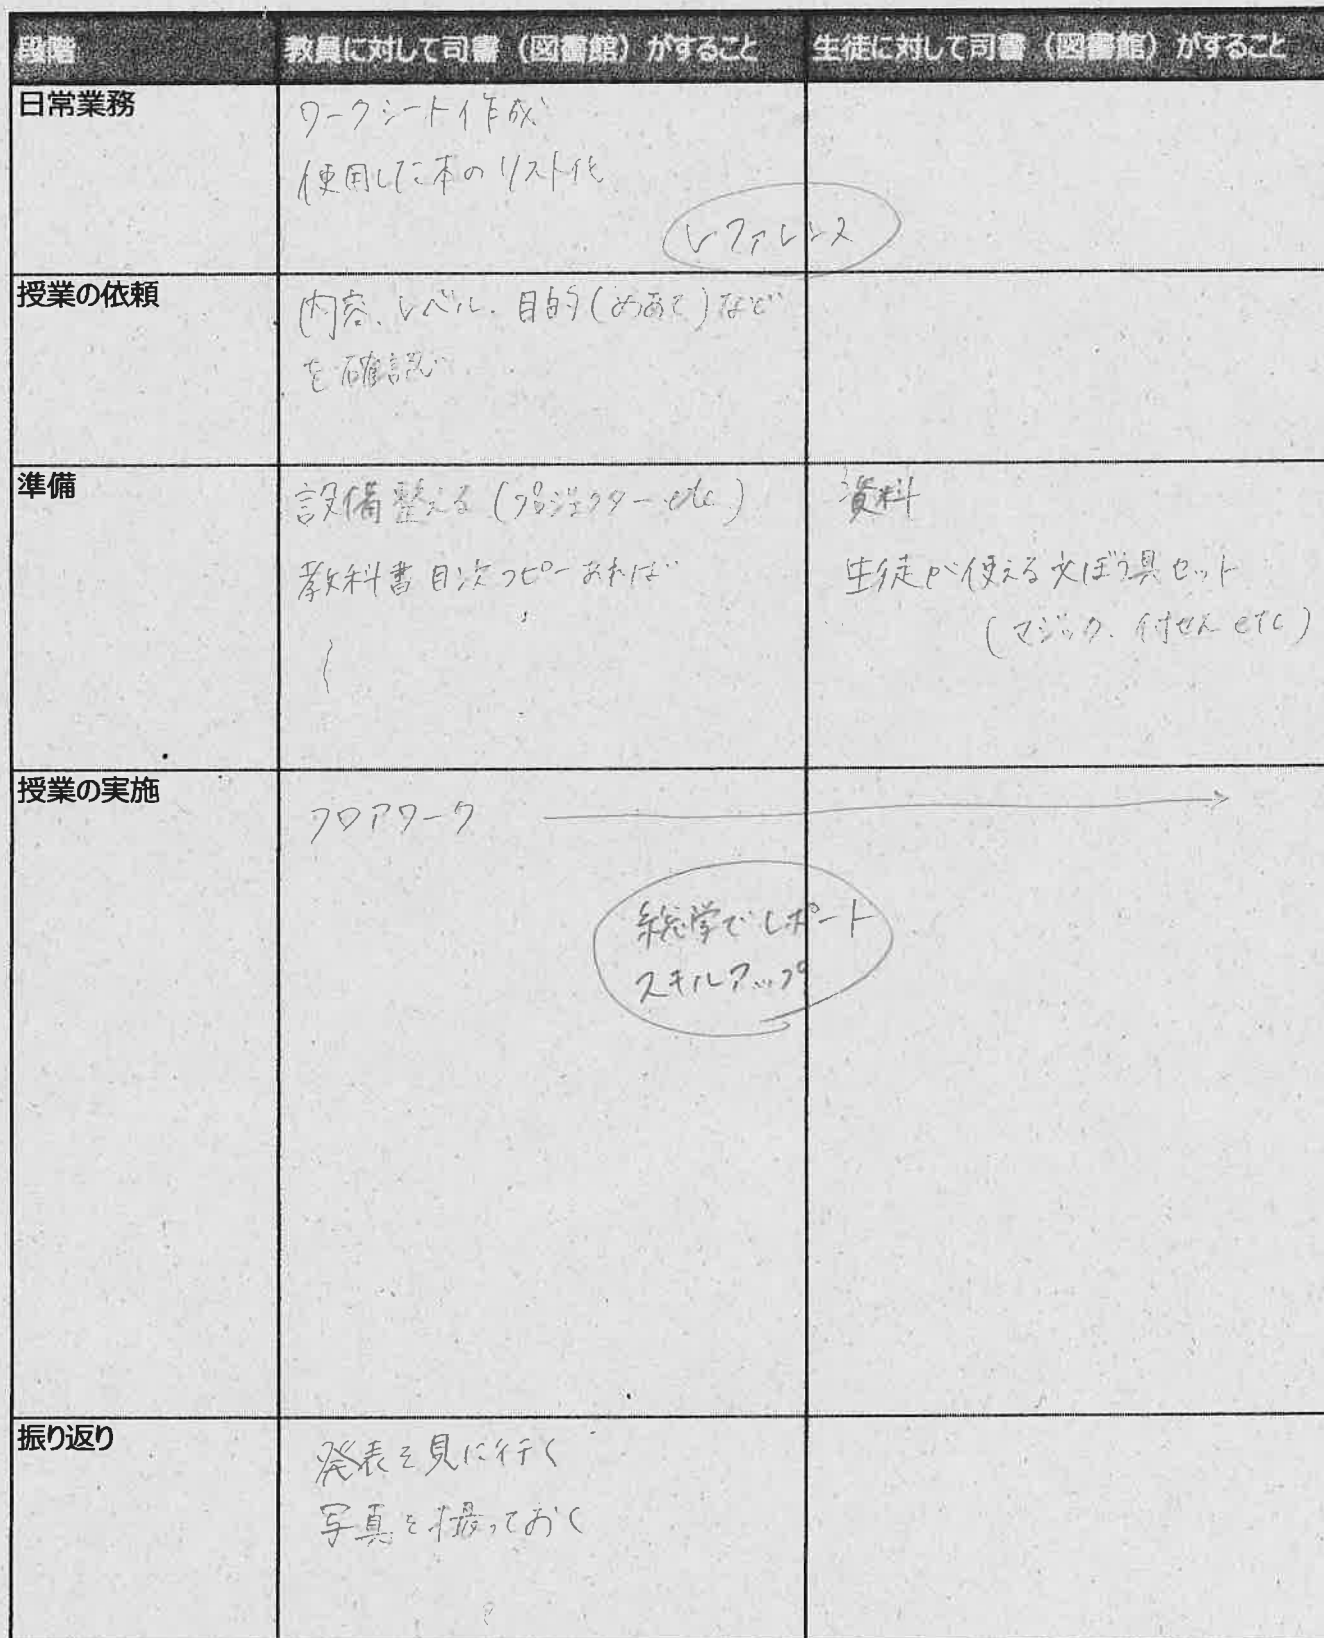 段階 教員に対して司書（図書館）がすること 生徒に対して司書（図書館）がすること
日常業務
ワークシート作成
使用した本のリスト化
レファレンス
授業の依頼
内容、レベル、目的(めあて)など
を確認
準備
設備整える(プロジェクターetc)
教科書目次コピーあれば
資料
生徒が使える文ぼう具セット
(マジック、付せんetc)
授業の実施
フロアワーク
総学でレポート
スキルアップ
振り返り
発表を見に行く
写真を撮っておく